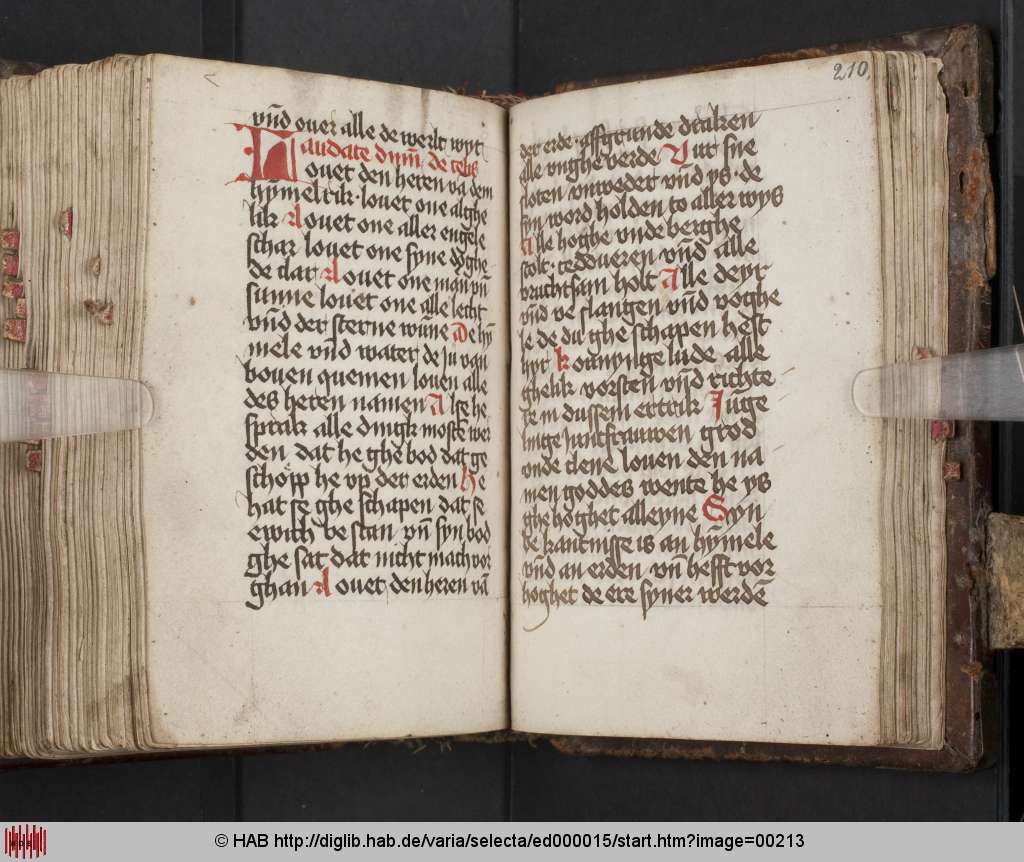 vn̄d ouer alle de werlt wyt
Laudate dnm̄ de celis
Louet den heren va dem
hȳmelrik · louet one alghe
lik Louet one aller engele
schar louet one syne doghe
de clar Louet one man vn̄
sunne louet one alle lecht
vn̄d der sterne wūne De hȳ
mele vn̄d water de ju van
bouen quemen louen alle
des heren namen Alse he
sprak alle dingk moste wer
den dat he ghe bod dat ge
schopp he vp der erden He
hat se ghe schapen dat se
ewich be stan vn̄ syn bod
ghe sat dat nicht mach vor
ghan Louet den heren vā
210
der erde · affgrunde draken
alle vnghe verde Vur sne
sloten vnweder vn̄d ys · de
syn word holden to aller wys
Alle hoghe vnde berghe
stolt · cedderen vn̄d alle
vruchtsam holt Alle deyr
vn̄d ve slangen vn̄d voghe
le de du ghe schapen hest
hyr Konnynge lude alle
ghelik vorsten vn̄d richte
re in dussem ertrik Junge
linge junctfrauwen grod
vnde clene louen den na
men goddes wente he ys
ghe hoghet alleyne Syn
be kantnisse is an hȳmele
vn̄d an erden vn̄ hefft vor
hoghet de ere syner werdē
© HAB http://diglib.hab.de/varia/selecta/ed000015/start.htm?image=00213